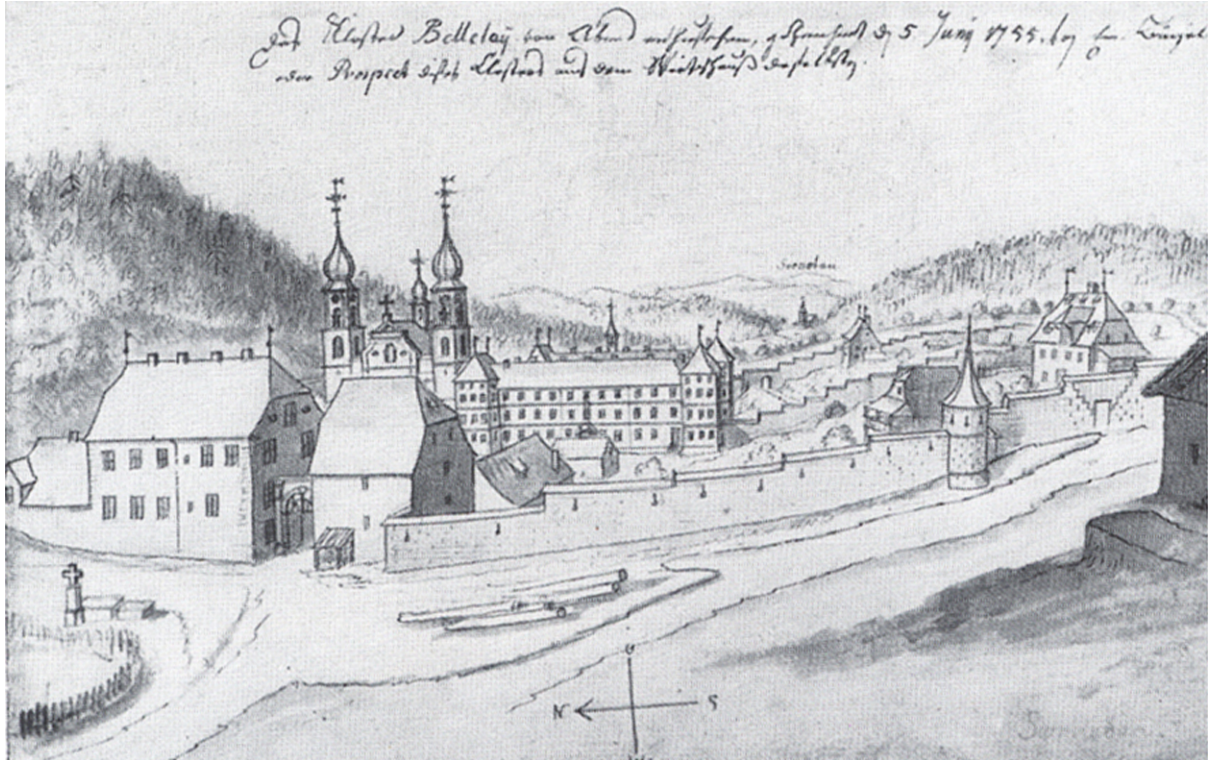 Das Kloster Bellelay von Abend anzusehen, gezeichnet d. 5 Juny 1755. von Em. Büchel
oder Prospect dieses Closters aus dem Wirtshauß daselbsten.
Sornetan
O
N S
W